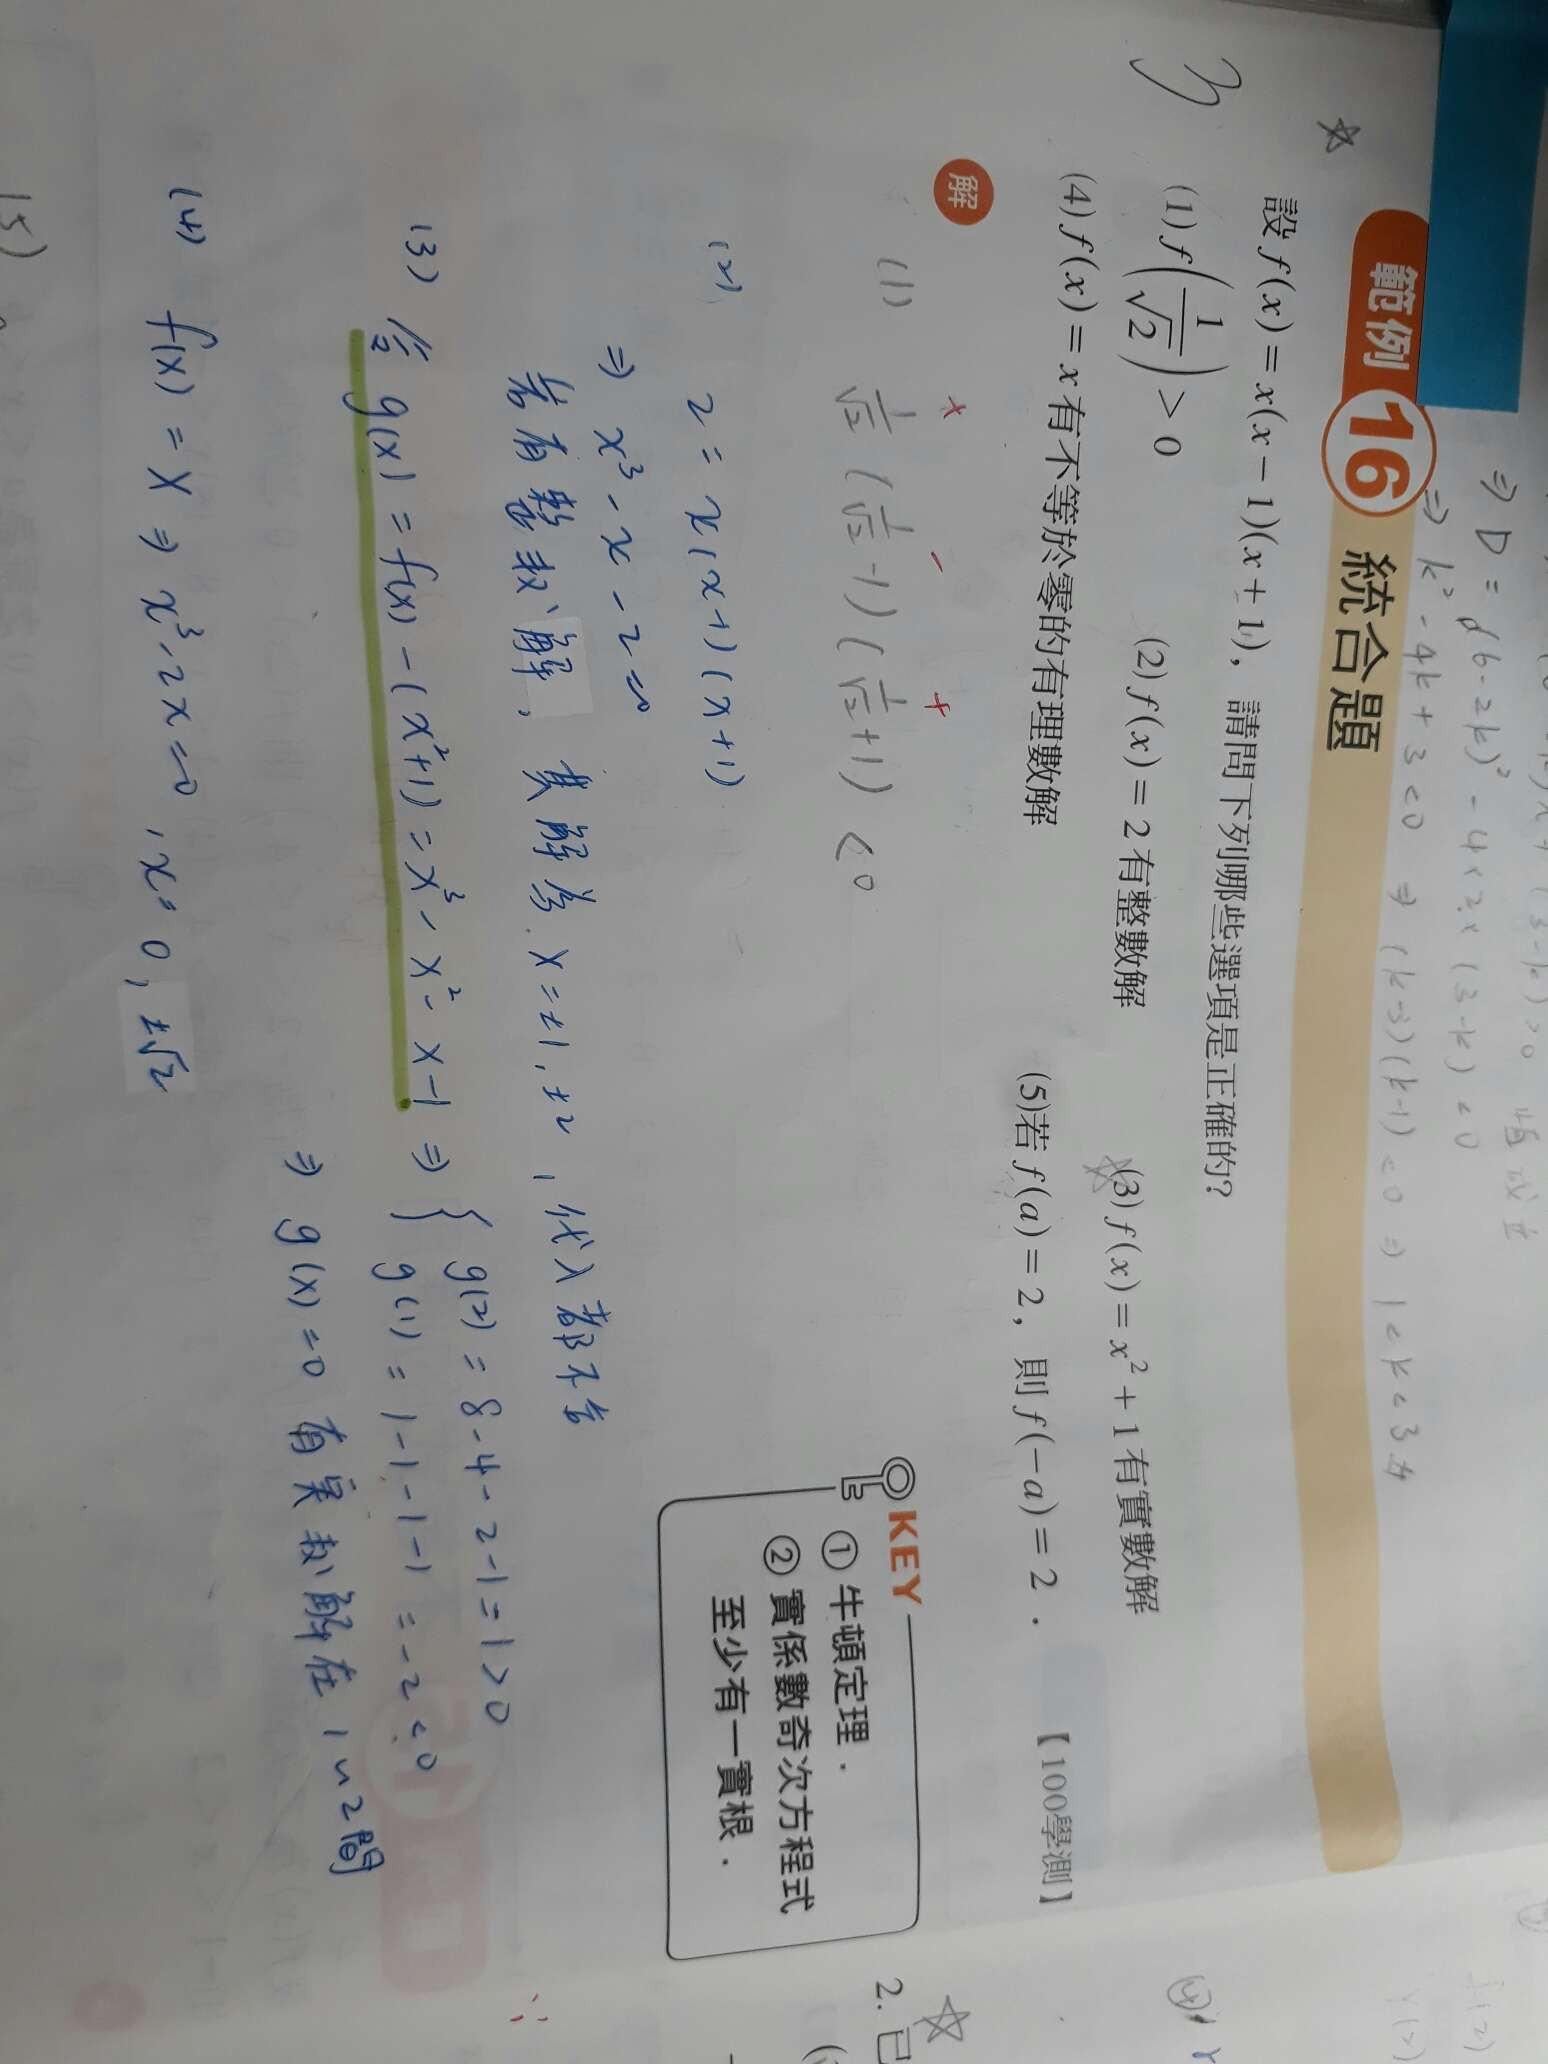 ⇒ D = (6-2k)² - 4×2×(3-k) < 0
⇒ k² - 4k + 3 < 0 ⇒ (k-3)(k-1) < 0 ⇒ 1 < k < 3
範例 16 統合題
☆
設 f(x) = x(x-1)(x+1)，請問下列哪些選項是正確的?
3
(1) f(1/√2) > 0 (2) f(x) = 2 有整數解 ☆(3) f(x) = x² + 1 有實數解
(4) f(x) = x 有不等於零的有理數解 (5)若 f(a) = 2，則 f(-a) = 2．
【100學測】
解
KEY
① 牛頓定理．
② 實係數奇次方程式
至少有一實根．
+ - +
(1) 1/√2 (1/√2 -1) (1/√2 +1) < 0
(2) 2 = x(x-1)(x+1)
⇒ x³ - x - 2 = 0
若有整數解，其解為 x = ±1, ±2，代入都不合
(3) 令 g(x) = f(x) - (x²+1) = x³ - x² - x - 1 ⇒ { g(2) = 8-4-2-1 = 1 > 0
g(1) = 1-1-1-1 = -2 < 0
⇒ g(x) = 0 有實數解在 1~2間
(4) f(x) = x ⇒ x³ - 2x = 0 , x = 0, ±√2
(5)
☆
2. 已